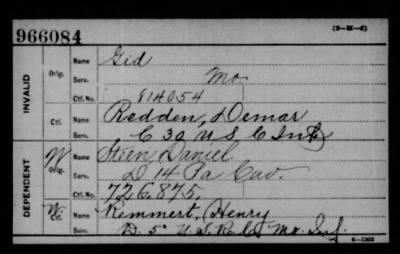 966084
(3—M—6)
INVALID
Orig.
Name Gid
Serv. Mo.
Ctf. No. 814054
Ctf.
Name Redden, Demar
Serv. C 30 U S C Inf
DEPENDENT
W Orig.
Name Steen, Daniel
Serv. D 14 Pa Cav.
Ctf. No. 726.875.
W. Ctf.
Name Remmert, Henry
Serv. D. 5" U.S.R.C. Mo. Inf.
6—1303